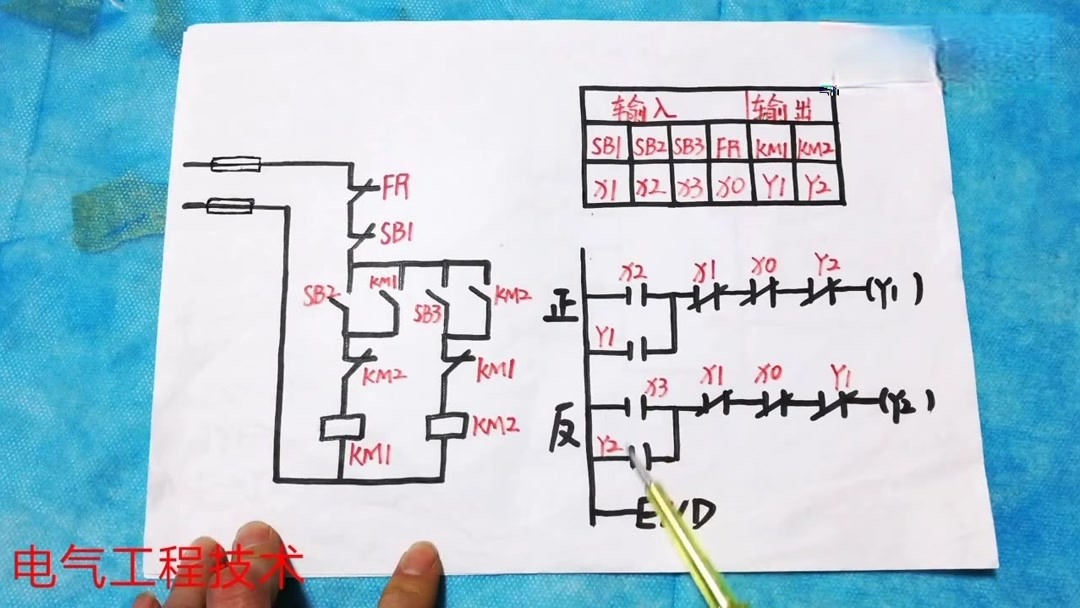 输入 输出
SB1 SB2 SB3 FR KM1 KM2
X1 X2 X3 X0 Y1 Y2
FR
SB1
SB2 KM1 SB3 KM2
KM2 KM1
KM1 KM2
X2 X1 X0 Y2
正 (Y1)
Y1
X3 X1 X0 Y1
反 (Y2)
Y2
END
电气工程技术